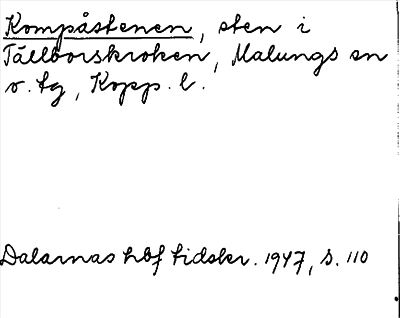 Kompåstenen, sten i
Tällborskroken, Malungs sn
o. tg, Kopp. l.
Dalarnas hbf tidskr. 1947, s. 110